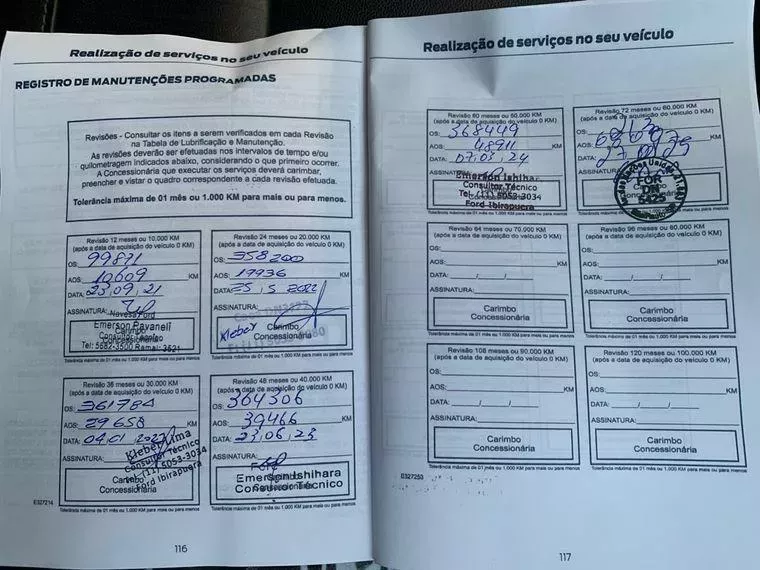 Realização de serviços no seu veículo
REGISTRO DE MANUTENÇÕES PROGRAMADAS
Revisões - Consultar os itens a serem verificados em cada Revisão
na Tabela de Lubrificação e Manutenção.
As revisões deverão ser efetuadas nos intervalos de tempo e/ou
quilometragem indicados abaixo, considerando o que primeiro ocorrer.
A Concessionária que executar os serviços deverá carimbar,
preencher e vistar o quadro correspondente a cada revisão efetuada.
Tolerância máxima de 01 mês ou 1.000 KM para mais ou para menos.
Revisão 12 meses ou 10.000 KM
(após a data de aquisição do veículo 0 KM)
OS: 99871
AOS: 10609 KM
DATA: 23,09,21
ASSINATURA:
Navesa Ford
Emerson Pavaneli
Carimbo
Consultor Técnico
Concessionária
Tel: 5682-3500 Ramal: 3521
Tolerância máxima de 01 mês ou 1.000 KM para mais ou para menos
Revisão 24 meses ou 20.000 KM
(após a data de aquisição do veículo 0 KM)
OS: 358200
AOS: 19936 KM
DATA: 25, 5, 2022
ASSINATURA:
Kleber
Carimbo
Concessionária
Tolerância máxima de 01 mês ou 1.000 KM para mais ou para menos
Revisão 36 meses ou 30.000 KM
(após a data de aquisição do veículo 0 KM)
OS: 361784
AOS: 29658 KM
DATA: 04,01,
ASSINATURA:
Kleber Lima
Consultor Técnico
(11) 5053-3034
Ford Ibirapuera
Carimbo
Concessionária
Tolerância máxima de 01 mês ou 1.000 KM para mais ou para menos
Revisão 48 meses ou 40.000 KM
(após a data de aquisição do veículo 0 KM)
OS: 364306
AOS: 39466 KM
DATA: 23,06,23
ASSINATURA:
Emerson Ishihara
Carimbo
Consultor Técnico
Concessionária
Tolerância máxima de 01 mês ou 1.000 KM para mais ou para menos
E327214
116
Realização de serviços no seu veículo
Revisão 60 meses ou 50.000 KM
(após a data de aquisição do veículo 0 KM)
OS: 368449
AOS: 48911 KM
DATA: 07,03,24
ASSINATURA:
Emerson Ishihar
Consultor Técnico
Tel.: (11) 5053-3034
Ford Ibirapuera
Tolerância máxima de 01 mês ou 1.000 KM para mais ou para menos
Revisão 72 meses ou 60.000 KM
(após a data de aquisição do veículo 0 KM)
OS:
AOS: KM
DATA:
ASSINATURA:
FOR
DN
5425
Revisão 84 meses ou 70.000 KM
(após a data de aquisição do veículo 0 KM)
OS:
AOS: KM
DATA: / /
ASSINATURA:
Carimbo
Concessionária
Tolerância máxima de 01 mês ou 1.000 KM para mais ou para menos
Revisão 96 meses ou 80.000 KM
(após a data de aquisição do veículo 0 KM)
OS:
AOS: KM
DATA: / /
ASSINATURA:
Carimbo
Concessionária
Tolerância máxima de 01 mês ou 1.000 KM para mais ou para menos
Revisão 108 meses ou 90.000 KM
(após a data de aquisição do veículo 0 KM)
OS:
AOS: KM
DATA: / /
ASSINATURA:
Carimbo
Concessionária
Tolerância máxima de 01 mês ou 1.000 KM para mais ou para menos
Revisão 120 meses ou 100.000 KM
(após a data de aquisição do veículo 0 KM)
OS:
AOS: KM
DATA: / /
ASSINATURA:
Carimbo
Concessionária
Tolerância máxima de 01 mês ou 1.000 KM para mais ou para menos
E327253
117